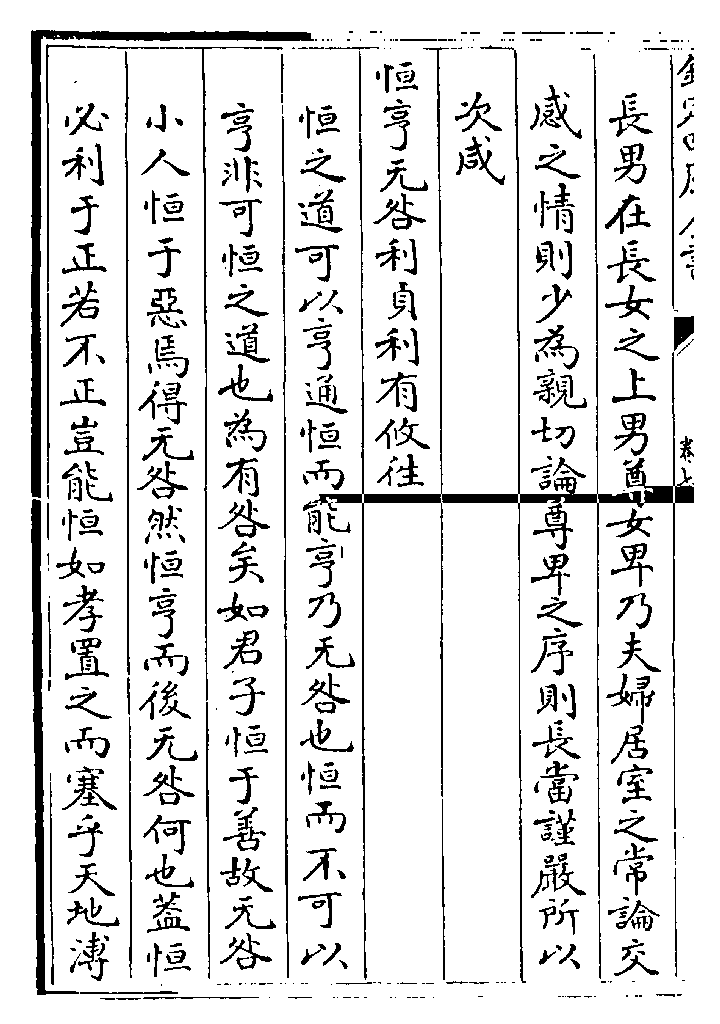 欽定四庫全書
卷七
長男在長女之上男尊女卑乃夫婦居室之常論交
感之情則少為親切論尊卑之序則長當謹嚴所以
次咸
恒亨无咎利貞利有攸往
恒之道可以亨通恒而能亨乃无咎也恒而不可以
亨非可恒之道也為有咎矣如君子恒于善故无咎
小人恒于惡焉得无咎然恒亨而後无咎何也葢恒
必利于正若不正豈能恒如孝置之而塞乎天地溥